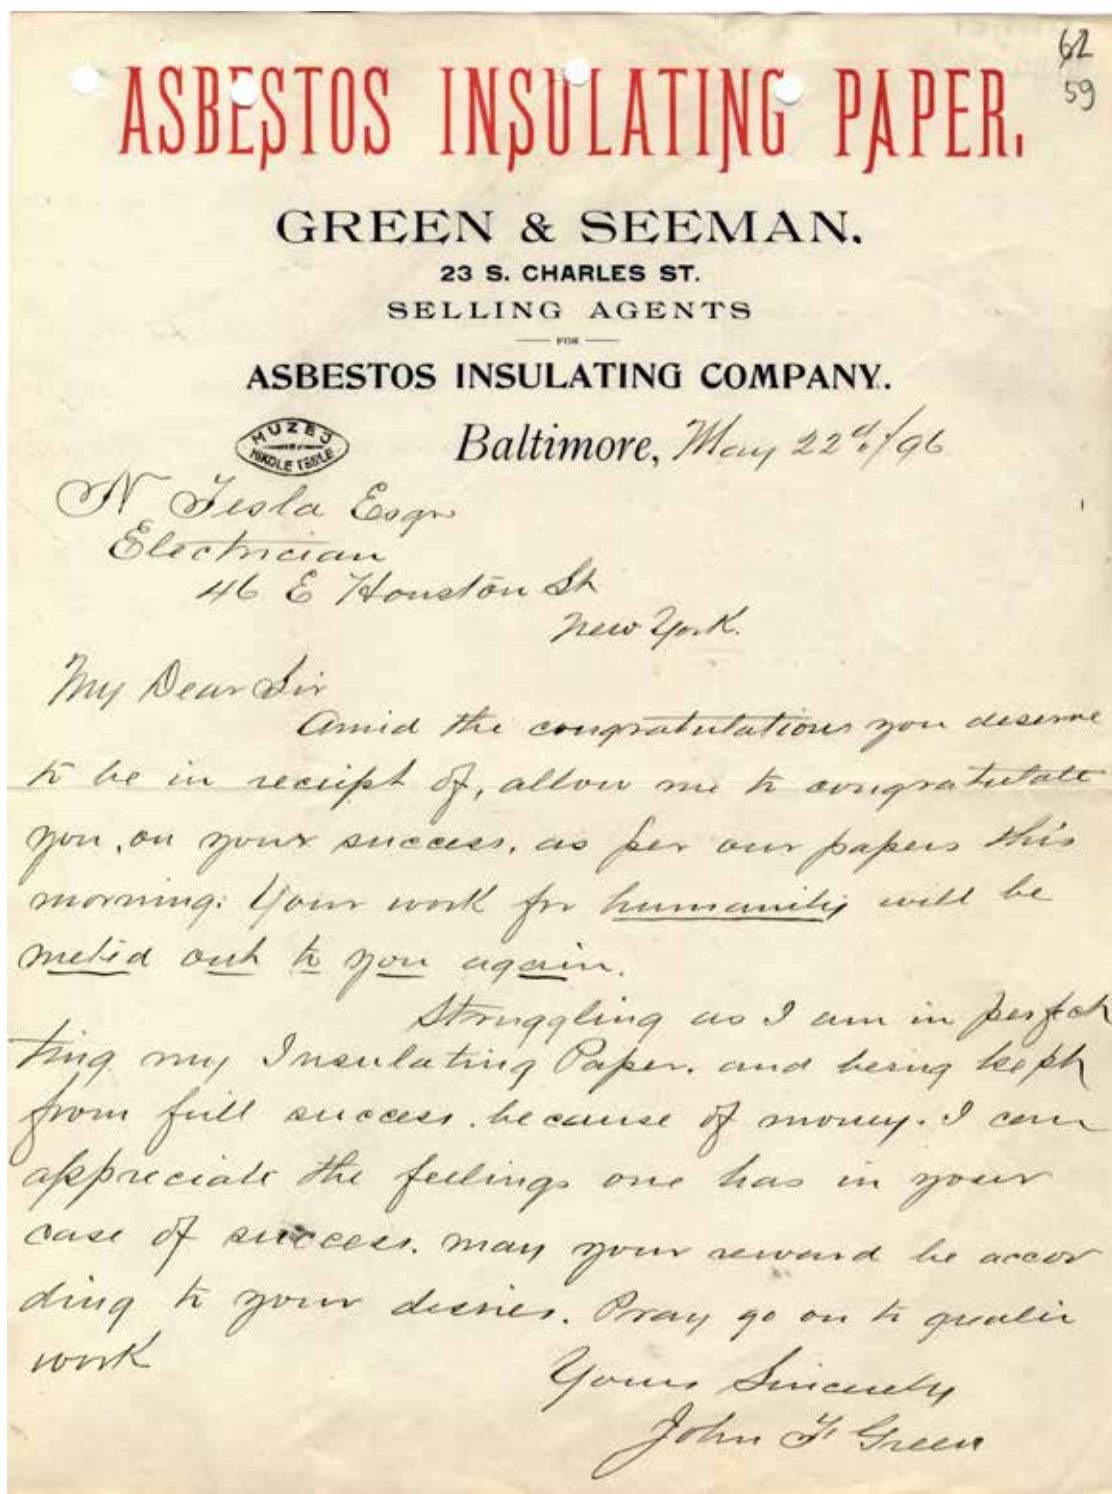 62
59
ASBESTOS INSULATING PAPER.
GREEN & SEEMAN.
23 S. CHARLES ST.
SELLING AGENTS
FOR
ASBESTOS INSULATING COMPANY.
MUZEJ
NIKOLE TESLE
Baltimore, May 22d/96
N Tesla Esqr
Electrician
46 E Houston St
New York.
My Dear Sir
Amid the congratulations you deserve
to be in receipt of, allow me to congratulate
you, on your success, as per our papers this
morning. Your work for humanity will be
meted out to you again.
Struggling as I am in perfec
ting my Insulating Paper. and being kept
from full success. because of money. I can
appreciate the feelings one has in your
case of success. may your reward be accor
ding to your desires. Pray go on to greater
work
Yours Sincerely
John F Green